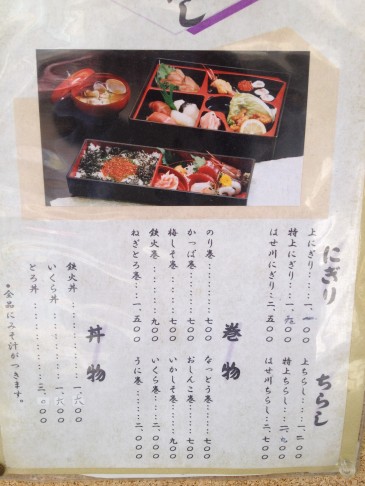 にぎり
上にぎり‥‥一、一〇〇
特上にぎり‥一、六〇〇
はせ川にぎり‥二、五〇〇
ちらし
上ちらし‥‥一、二〇〇
特上ちらし‥一、九〇〇
はせ川ちらし‥二、七〇〇
巻物
のり巻‥‥‥‥‥七〇〇
かっぱ巻‥‥‥‥七〇〇
梅しそ巻‥‥‥‥七〇〇
鉄火巻‥‥‥‥‥九〇〇
ねぎとろ巻‥‥一、五〇〇
なっとう巻‥‥七〇〇
おしんこ巻‥‥七〇〇
いかしそ巻‥‥九〇〇
いくら巻‥‥二、〇〇〇
うに巻‥‥‥二、〇〇〇
丼物
鉄火丼‥‥‥‥‥一、六〇〇
いくら丼‥‥‥‥一、六〇〇
とろ丼‥‥‥‥‥三、〇〇〇
*全品にみそ汁がつきます。